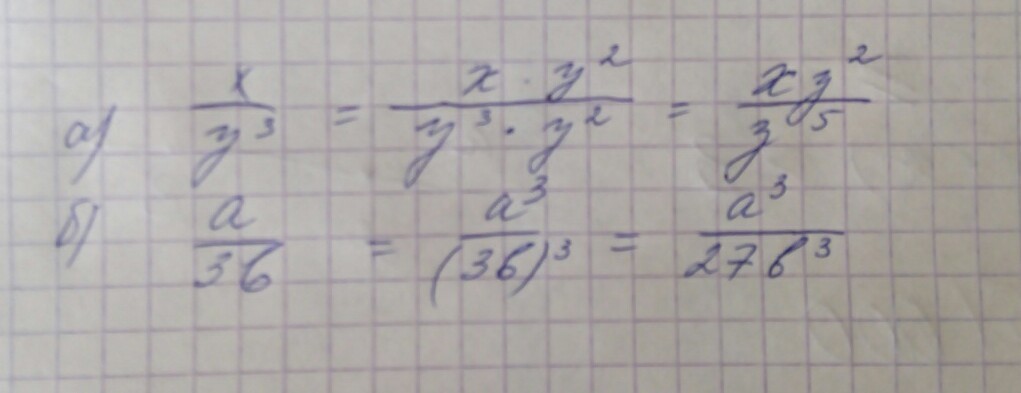 а) x/y³ = x · y²/y³ · y² = xy²/y⁵
б) a/3b = a³/(3b)³ = a³/27b³